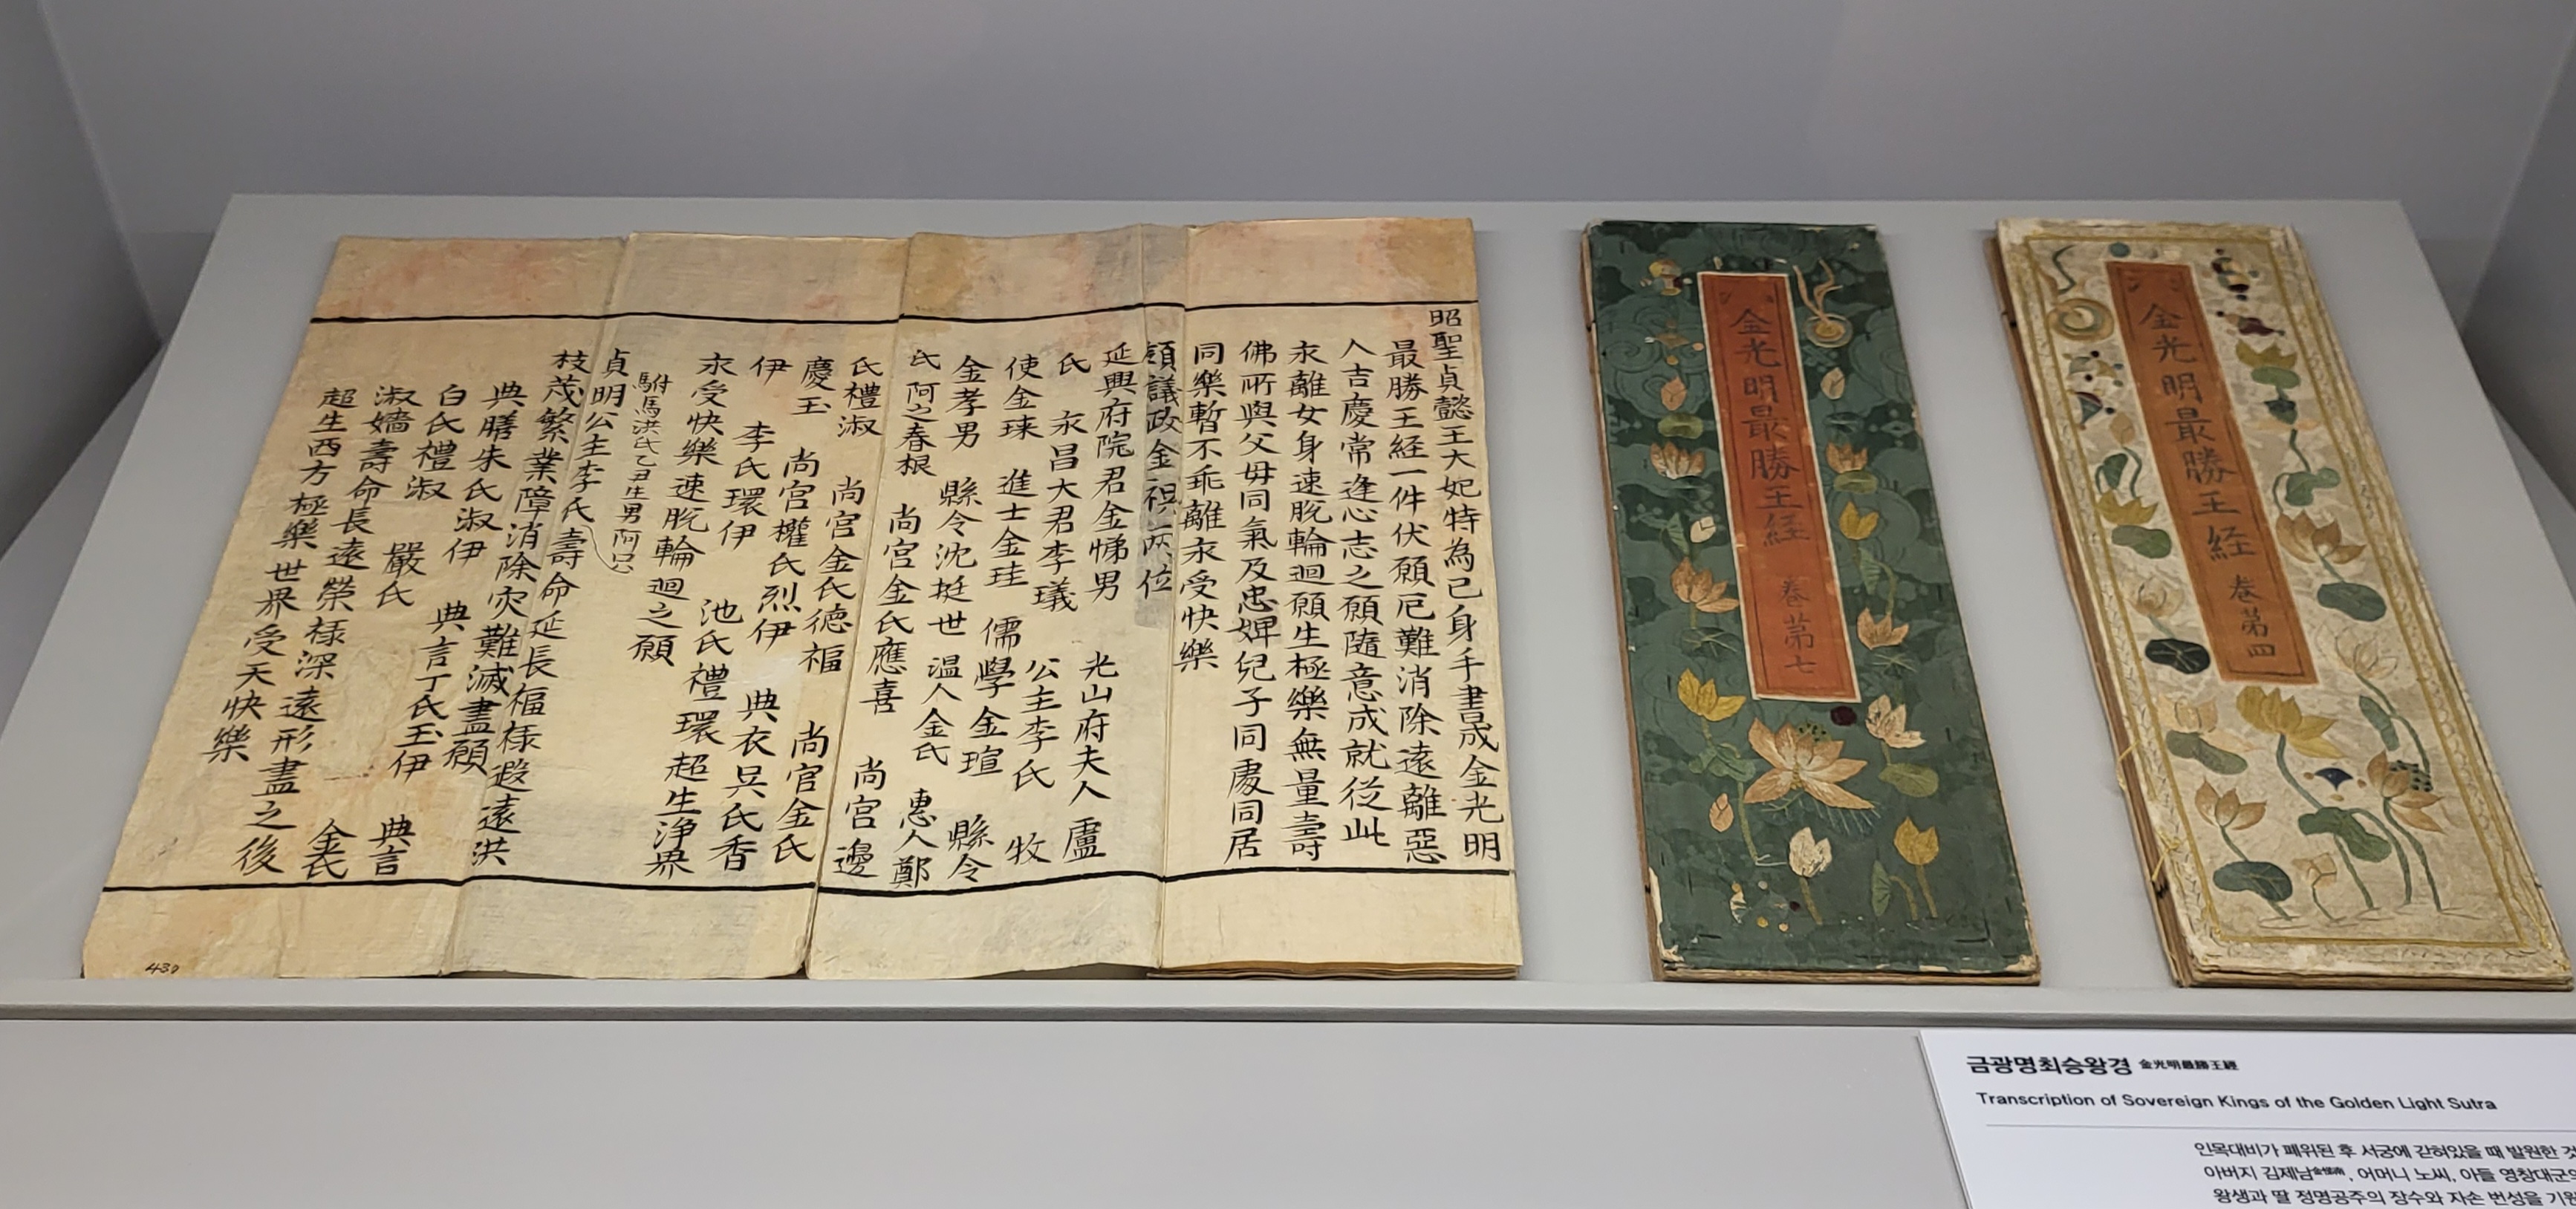 昭聖貞懿王大妃特為己身手書成金光明
最勝王經一件伏願厄難消除遠離惡
人吉慶常逢心志之願隨意成就從此
永離女身速脫輪迴願生極樂無量壽
佛所與父母同氣及忠婢兒子同處同居
同樂暫不乖離永受快樂
領議政金祖兩位
延興府院君金悌男 光山府夫人盧
氏 永昌大君李㼁 公主李氏 牧
使金琜 進士金珪 儒學金瑄 縣令
金孝男 縣令沈挺世 溫人金氏 惠人鄭
氏 阿之春根 尚宮金氏應喜 尚宮邊
氏禮淑 尚宮金氏德福 尚宮金氏
慶玉 尚宮權氏烈伊 典衣吳氏香
伊 李氏環伊 池氏禮環超生淨界
永受快樂速脫輪迴之願
駙馬洪氏乙丑生男阿只
貞明公主李氏壽命延長福祿遐遠洪
枝茂繁業障消除灾難滅盡願
典膳朱氏淑伊 典言丁氏玉伊 典言
白氏禮淑 嚴氏 金氏
淑嬌壽命長遠榮祿深遠形盡之後
超生西方極樂世界受天快樂
430
金光明最勝王経 巻第七
金光明最勝王経 巻第四
금광명최승왕경 金光明最勝王經
Transcription of Sovereign Kings of the Golden Light Sutra
인목대비가 폐위된 후 서궁에 갇혀있을 때 발원한 것
아버지 김제남金悌男, 어머니 노씨, 아들 영창대군의
왕생과 딸 정명공주의 장수와 자손 번성을 기원